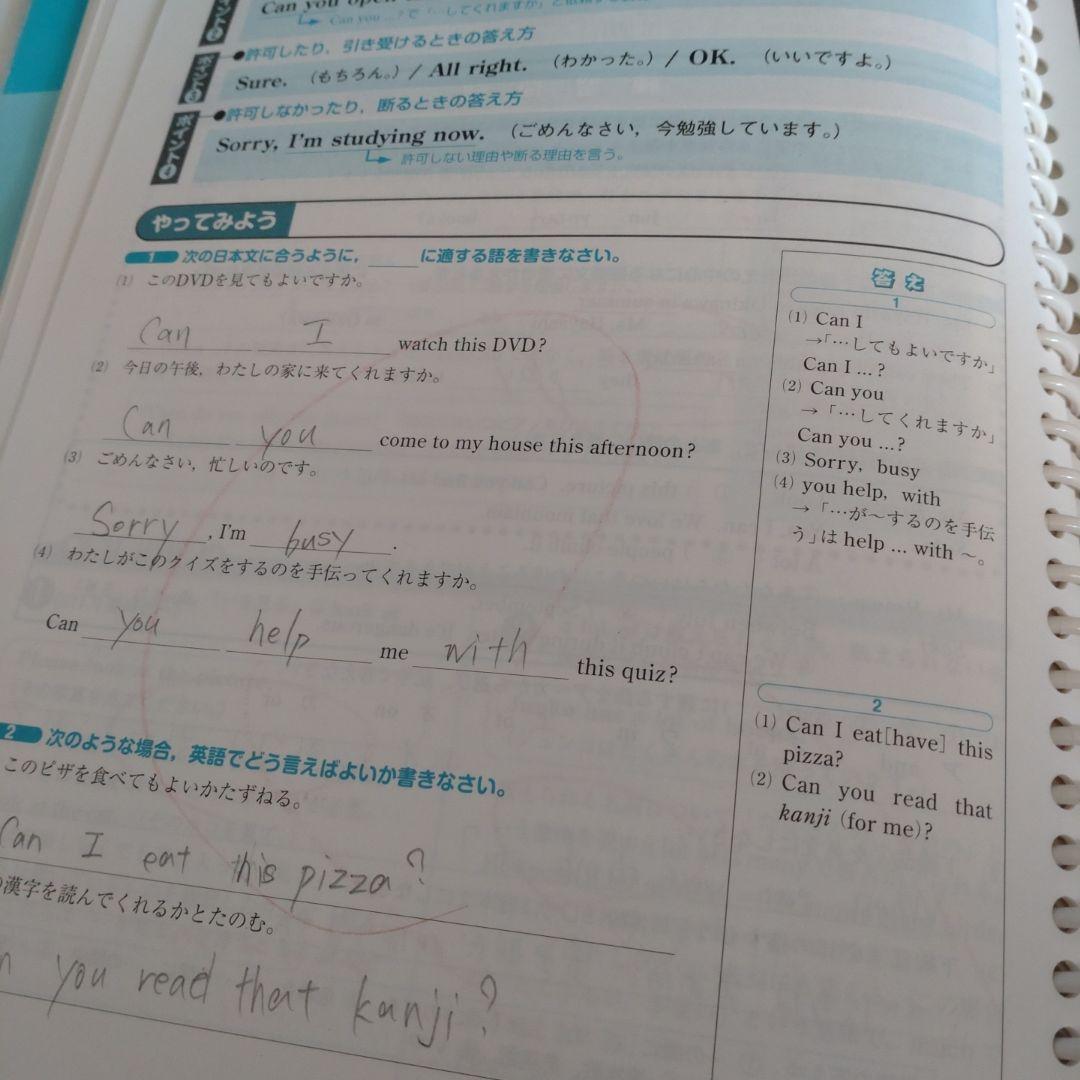 Can you open
Can you ...? で「…してくれますか」と依頼
ポイント3
許可したり，引き受けるときの答え方
Sure. （もちろん。）/ All right. （わかった。）/ OK. （いいですよ。）
ポイント4
許可しなかったり，断るときの答え方
Sorry, I'm studying now. （ごめんなさい，今勉強しています。）
許可しない理由や断る理由を言う。
やってみよう
1 次の日本文に合うように，＿＿に適する語を書きなさい。
(1) このDVDを見てもよいですか。
Can I watch this DVD?
(2) 今日の午後，わたしの家に来てくれますか。
Can you come to my house this afternoon?
(3) ごめんなさい，忙しいのです。
Sorry , I'm busy .
(4) わたしがこのクイズをするのを手伝ってくれますか。
Can you help me with this quiz?
2 次のような場合，英語でどう言えばよいか書きなさい。
このピザを食べてもよいかたずねる。
Can I eat this pizza?
漢字を読んでくれるかとたのむ。
you read that kanji?
答え
1
(1) Can I
→「…してもよいですか」
Can I ... ?
(2) Can you
→「…してくれますか」
Can you ...?
(3) Sorry, busy
(4) you help, with
→「…が〜するのを手伝
う」は help ... with 〜。
2
(1) Can I eat[have] this
pizza?
(2) Can you read that
kanji (for me)?